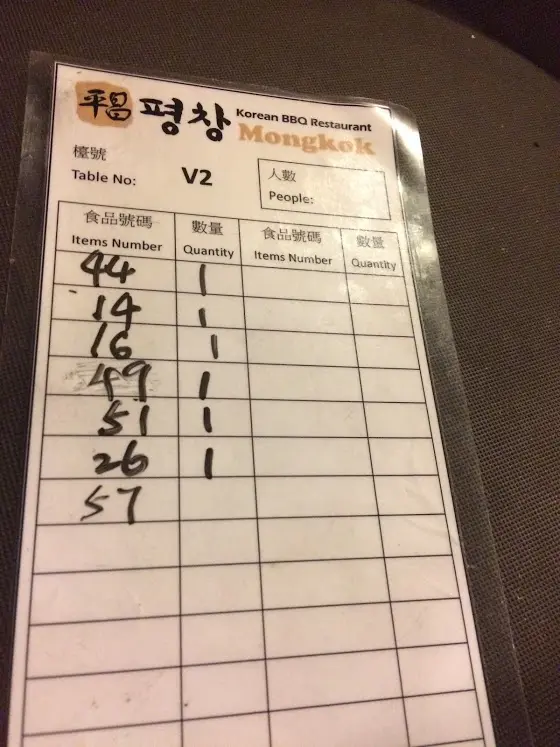 平昌 평창 Korean BBQ Restaurant
Mongkok
檯號
Table No: V2
人數
People:
食品號碼 數量 食品號碼 數量
Items Number Quantity Items Number Quantity
44 1
14 1
16 1
49 1
51 1
26 1
57